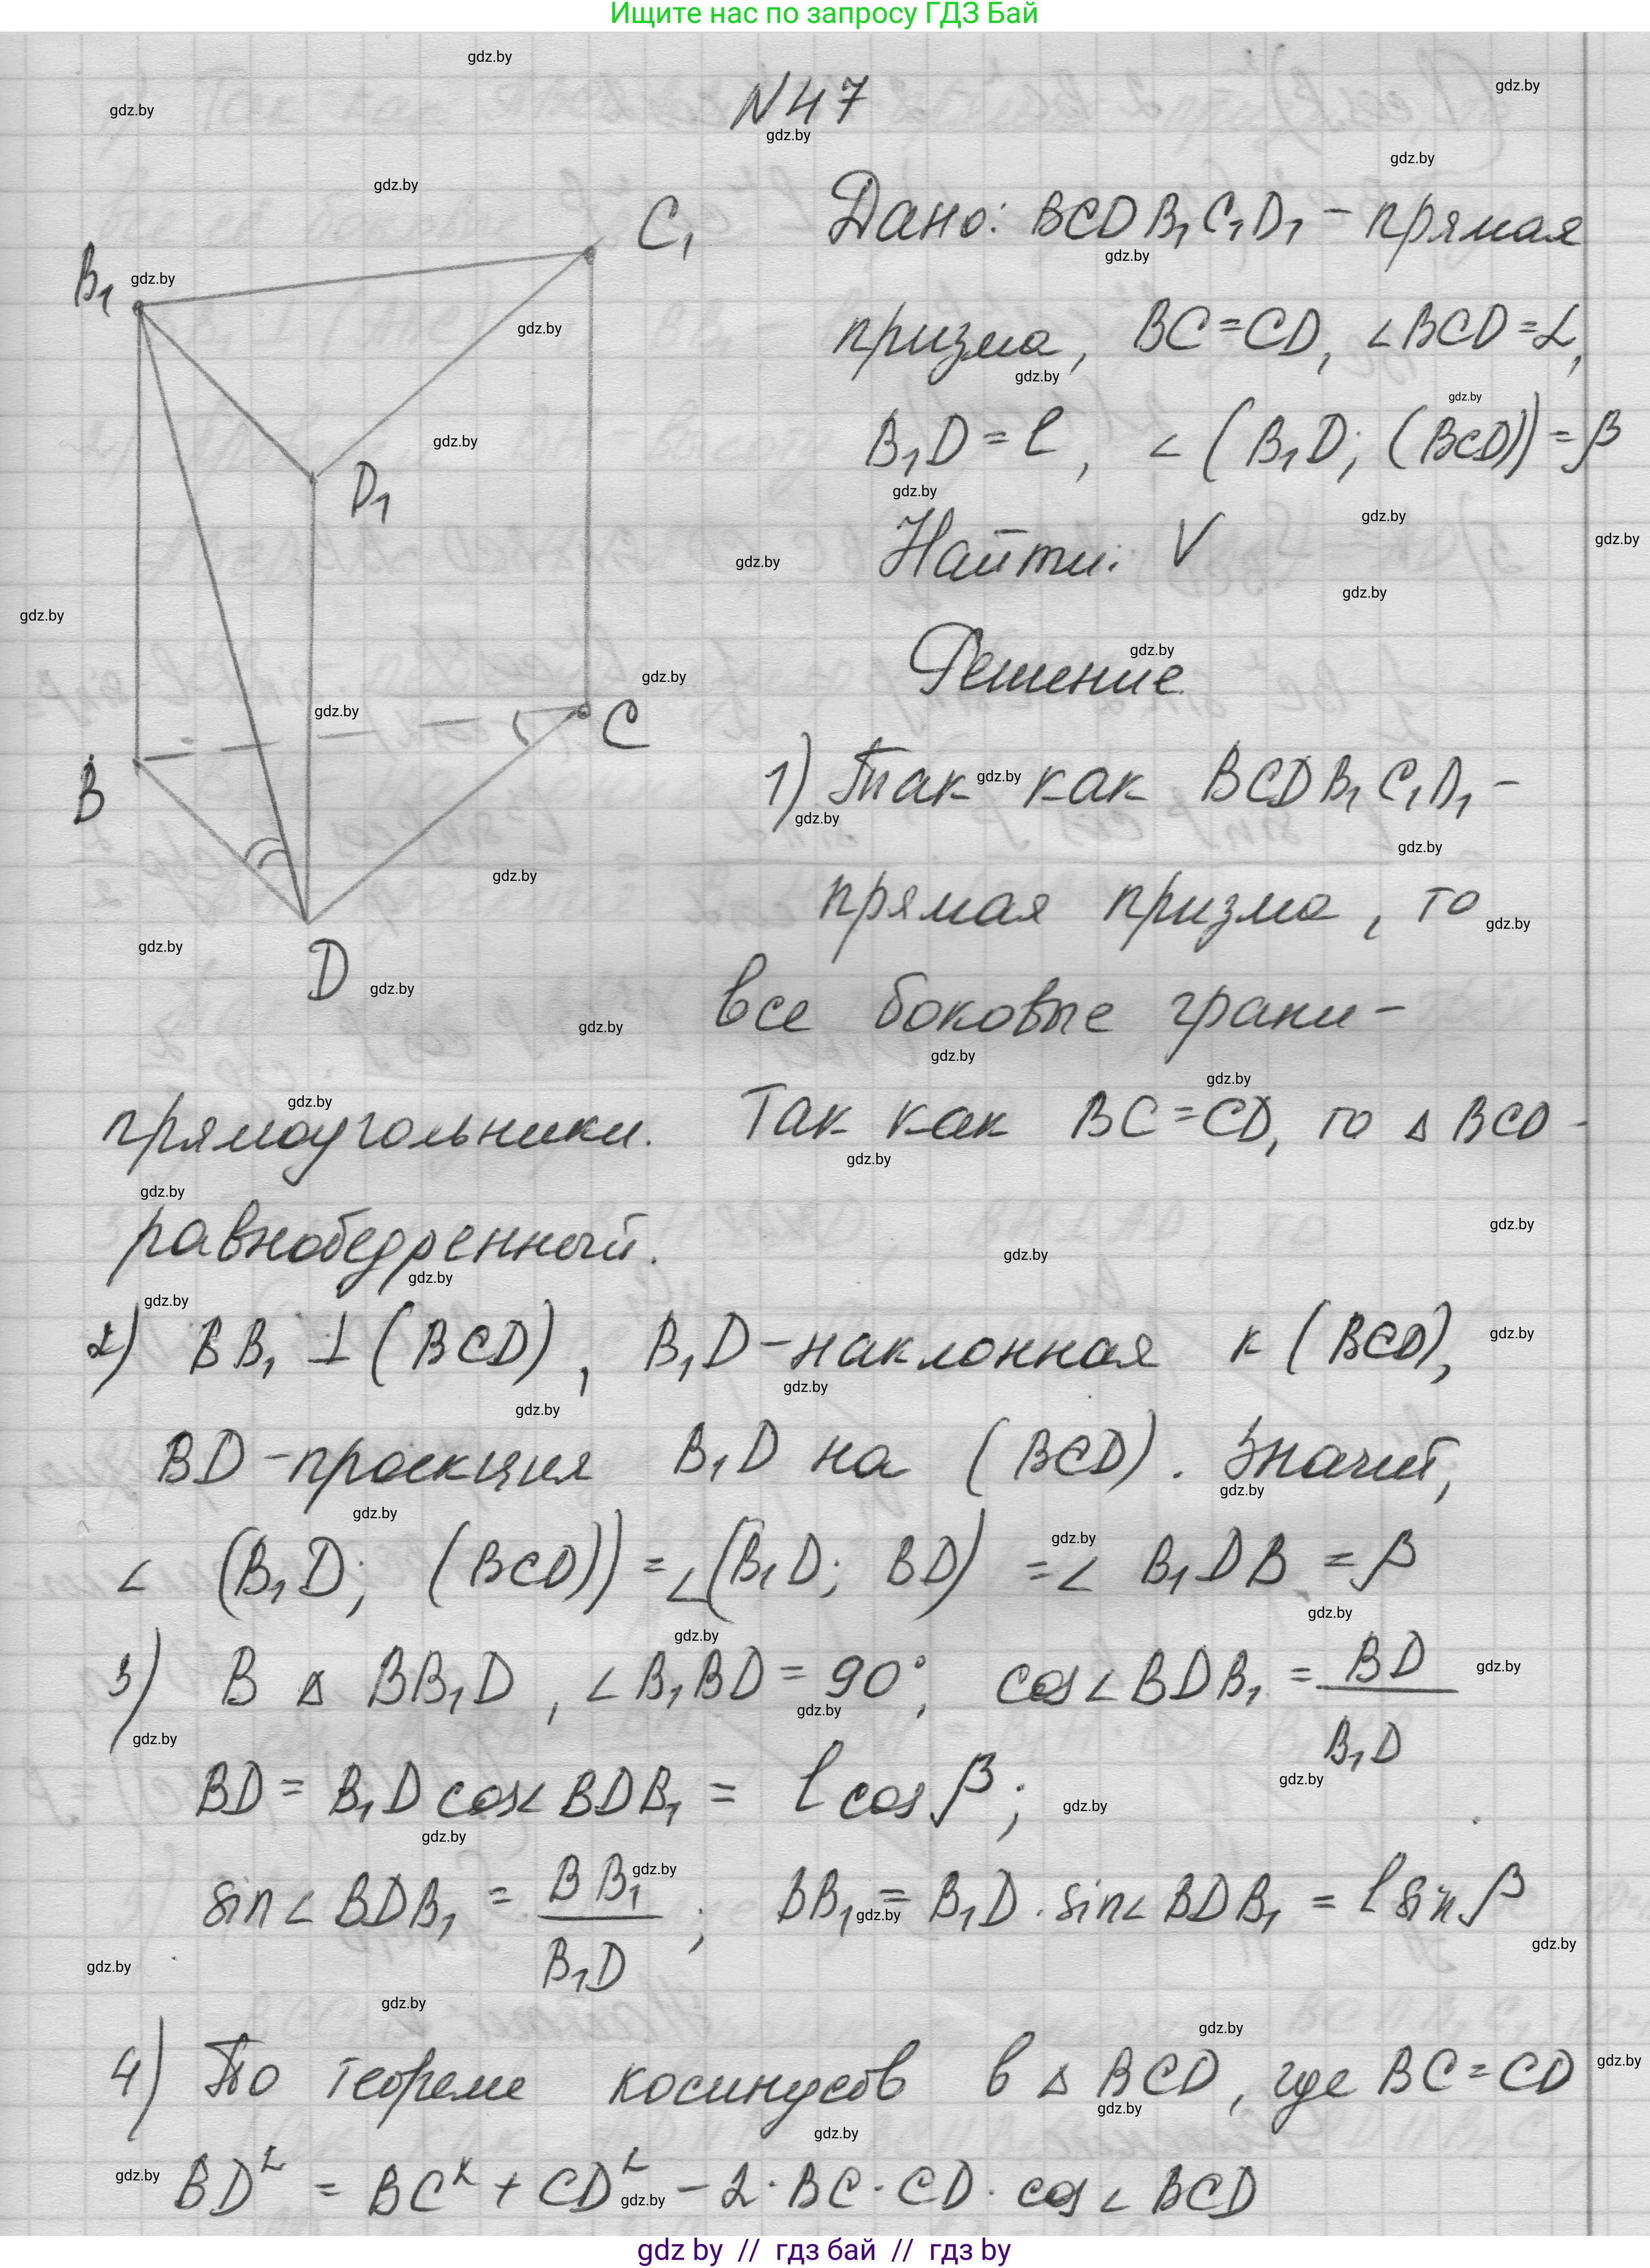 Ищите нас по запросу ГДЗ Бай
N47
Дано: BCDB₁C₁D₁ - прямая
призма, BC=CD, ∠BCD=α,
B₁D=l, ∠(B₁D; (BCD))=β
Найти: V
Решение.
B₁
C₁
D₁
B
C
D
1) Так как BCDB₁C₁D₁ -
прямая призма, то
все боковые грани -
прямоугольники. Так как BC=CD, то △BCD -
равнобедренный.
2) BB₁ ⊥ (BCD), B₁D - наклонная к (BCD),
BD - проекция B₁D на (BCD). Значит,
∠ (B₁D; (BCD)) = ∠(B₁D; BD) = ∠ B₁DB = β
3) В △ BB₁D, ∠B₁BD = 90°, cos∠BDB₁ = BD/B₁D
BD = B₁D cos∠BDB₁ = l cos β;
sin∠BDB₁ = BB₁/B₁D; BB₁ = B₁D · sin∠BDB₁ = l sin β
4) По теореме косинусов в △ BCD, где BC=CD
BD² = BC² + CD² - 2·BC·CD·cos∠BCD
gdz by // гдз бай // гдз by